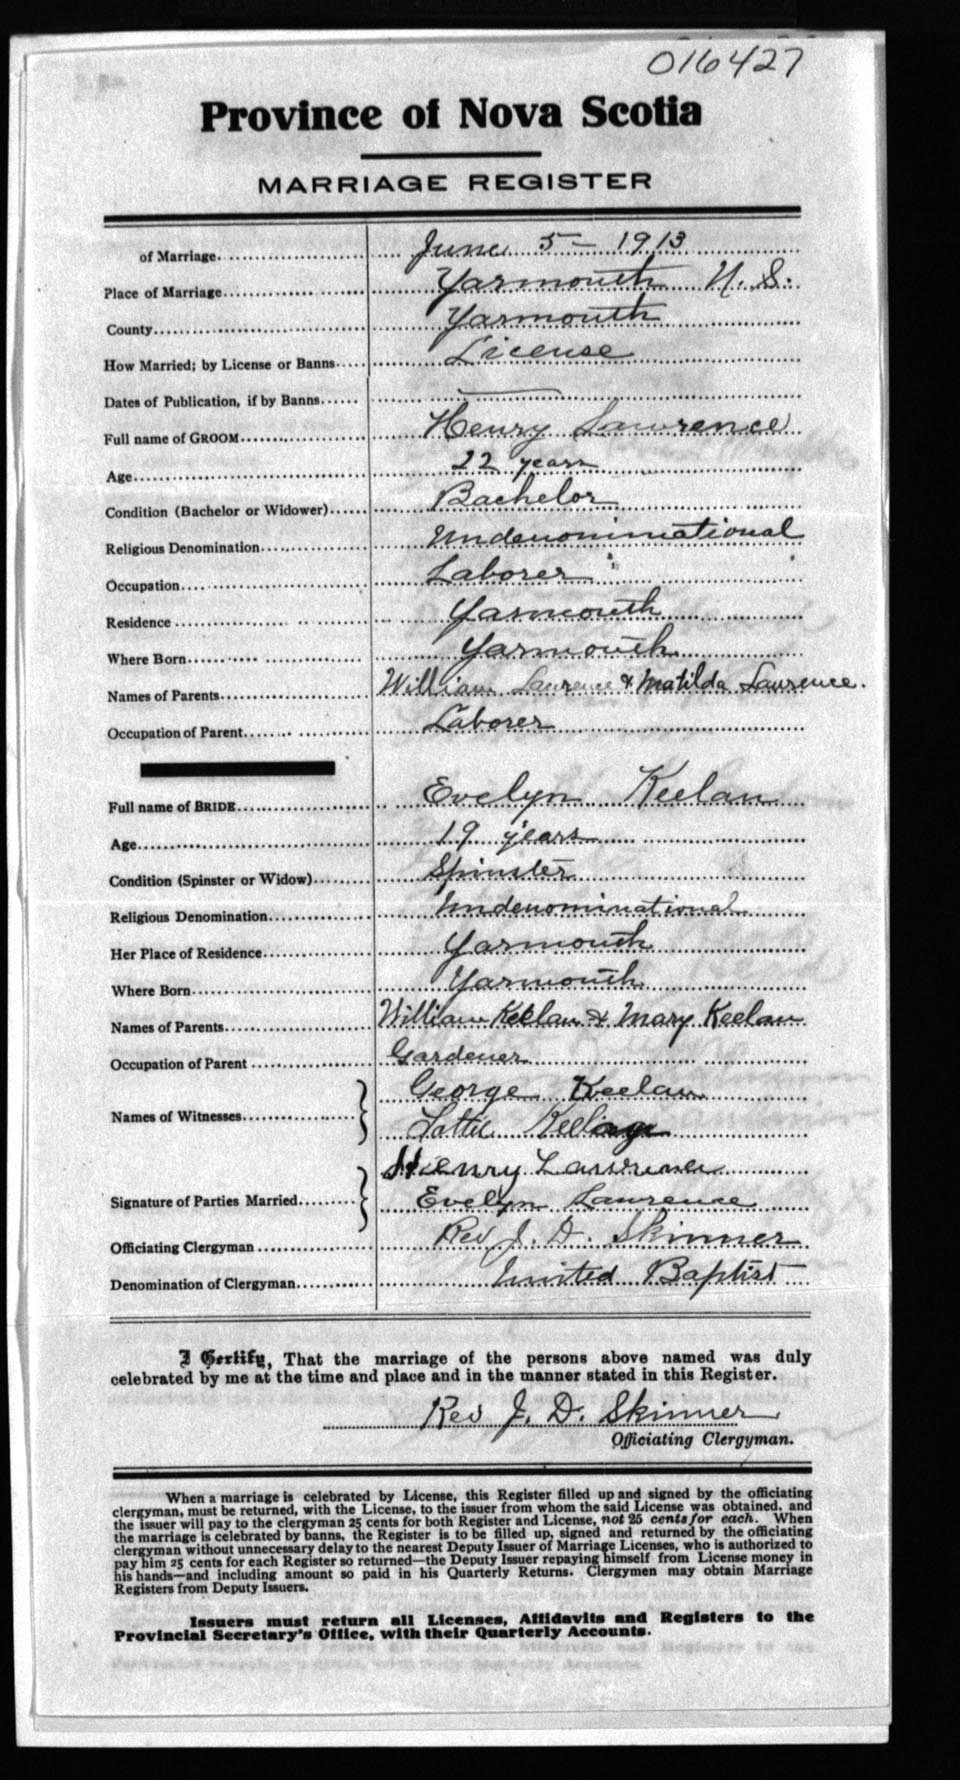 016427
Province of Nova Scotia
MARRIAGE REGISTER
of Marriage June 5 - 1913
Place of Marriage Yarmouth N. S.
County Yarmouth
How Married; by License or Banns License
Dates of Publication, if by Banns
Full name of GROOM Henry Lawrence
Age 22 years
Condition (Bachelor or Widower) Bachelor
Religious Denomination Undenominational
Occupation Laborer
Residence Yarmouth
Where Born Yarmouth
Names of Parents William Lawrence & Matilda Lawrence.
Occupation of Parent Laborer
Full name of BRIDE Evelyn Keelan
Age 19 years
Condition (Spinster or Widow) Spinster
Religious Denomination Undenominational
Her Place of Residence Yarmouth
Where Born Yarmouth
Names of Parents William Keelan & Mary Keelan
Occupation of Parent Gardener
George Keelan
Names of Witnesses
Lottie
Henry Lawrence
Signature of Parties Married
Evelyn Lawrence
Officiating Clergyman Rev J. D. Skinner
Denomination of Clergyman United Baptist
I Certify, That the marriage of the persons above named was duly
celebrated by me at the time and place and in the manner stated in this Register.
Rev J. D. Skinner
Officiating Clergyman.
When a marriage is celebrated by License, this Register filled up and signed by the officiating
clergyman, must be returned, with the License, to the issuer from whom the said License was obtained, and
the issuer will pay to the clergyman 25 cents for both Register and License, not 25 cents for each. When
the marriage is celebrated by banns, the Register is to be filled up, signed and returned by the officiating
clergyman without unnecessary delay to the nearest Deputy Issuer of Marriage Licenses, who is authorized to
pay him 25 cents for each Register so returned—the Deputy Issuer repaying himself from License money in
his hands—and including amount so paid in his Quarterly Returns. Clergymen may obtain Marriage
Registers from Deputy Issuers.
Issuers must return all Licenses, Affidavits and Registers to the
Provincial Secretary's Office, with their Quarterly Accounts.